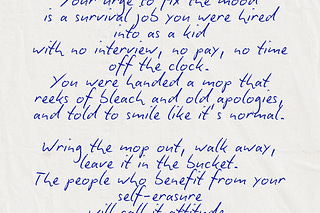 Your urge to fix the mood
is a survival job you were hired
into as a kid
with no interview, no pay, no time
off the clock.
You were handed a mop that
reeks of bleach and old apologies,
and told to smile like it's normal.
Wring the mop out, walk away,
leave it in the bucket.
The people who benefit from your
self-erasure
will call it attitude